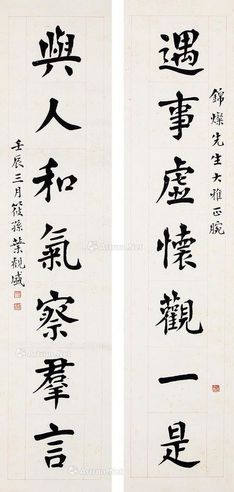 錦燦先生大雅正腕
遇事虛懷觀一是
與人和氣察羣言
壬辰三月筱孫葉觀盛